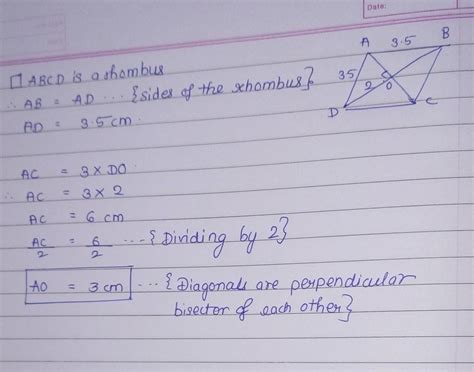 Date:
□ ABCD is a rhombus
∴ AB = AD ... {sides of the rhombus}
AD = 3.5 cm
A 3.5 B
35
2 O
D C
AC = 3 × DO
∴ AC = 3 × 2
AC = 6 cm
AC/2 = 6/2 ... {Dividing by 2}
AO = 3 cm ... {Diagonals are perpendicular
bisector of each other}